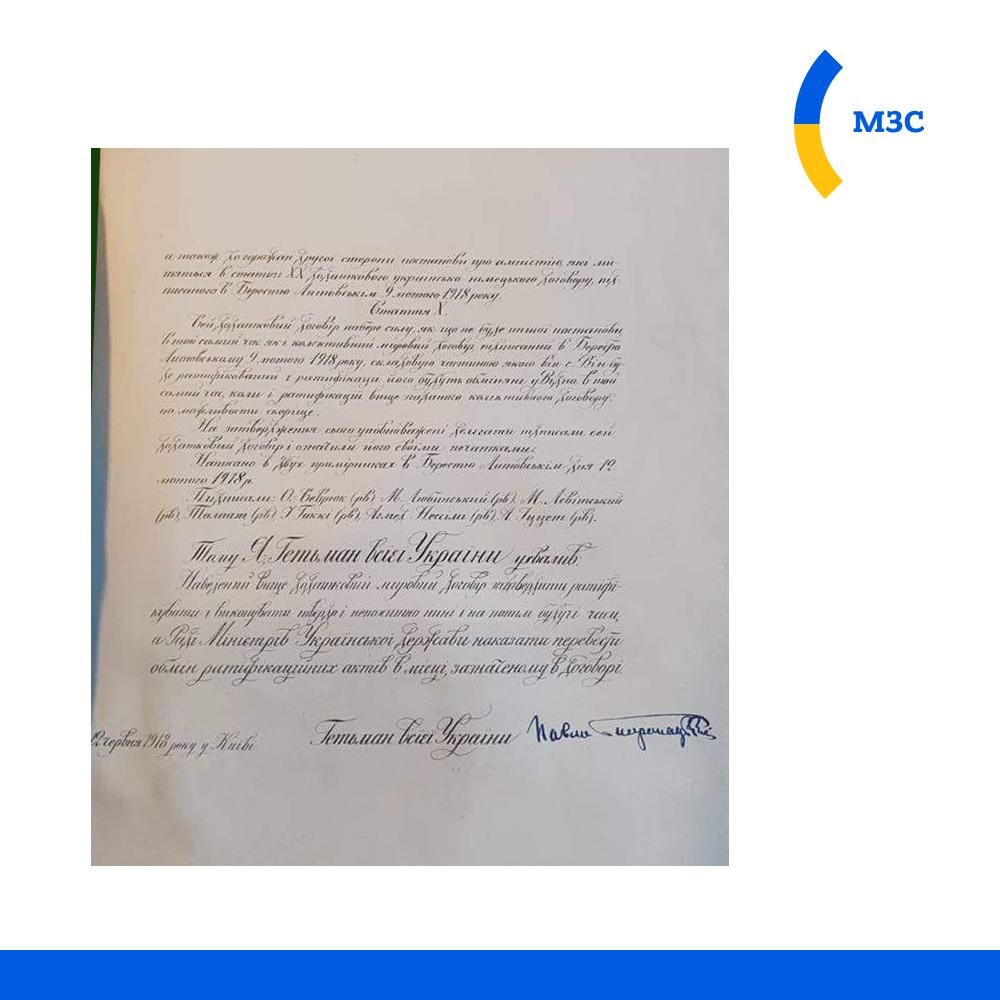 МЗС
а також до горожан другої сторони постанови про амністію, які мі-
тяться в статті XX додаткового українсько німецького договору, під-
писаного в Берестю Литовськім 9 лютого 1918 року.
Стаття X.
Сей додатковий договір набере силу, як що не буде иншої постанови,
в той самий час як і колективний мировий договір, підписаний в Берестю
Литовському 9 лютого 1918 року, складовою частиною якого він є. Він бу-
де ратифікований і ратифікації його будуть обміняні у Відні в той
самий час, коли і ратифікації вище згаданого колєктивного договору,
що можливости скорше.
На затвердження сього уповноважені делєгати підписали сей
додатковий договір і опатрили його своїми печатками.
Написано в двух примірниках в Берестю Литовськім дня 12
лютого 1918 р.
Підписали: О. Севрюк (рв), М. Любинський (рв), М. Левитський
(рв), Талаат (рв), І. Гаккі (рв), Ахмед Нессімі (рв), А. Іццет (рв).
Тому Я, Гетьман всієї України ухвалив:
Наведений вище додатковий мировий договір затвердити, ратифі-
кувати і виконувати твердо і непохитно нині і на потім будучі часи,
а Раді Міністрів Української Держави наказати перевести
обмін ратифікаційних актів в місці, зазначеному в договорі.
12 червня 1918 року у Київі
Гетьман всієї України Павло Скоропадський